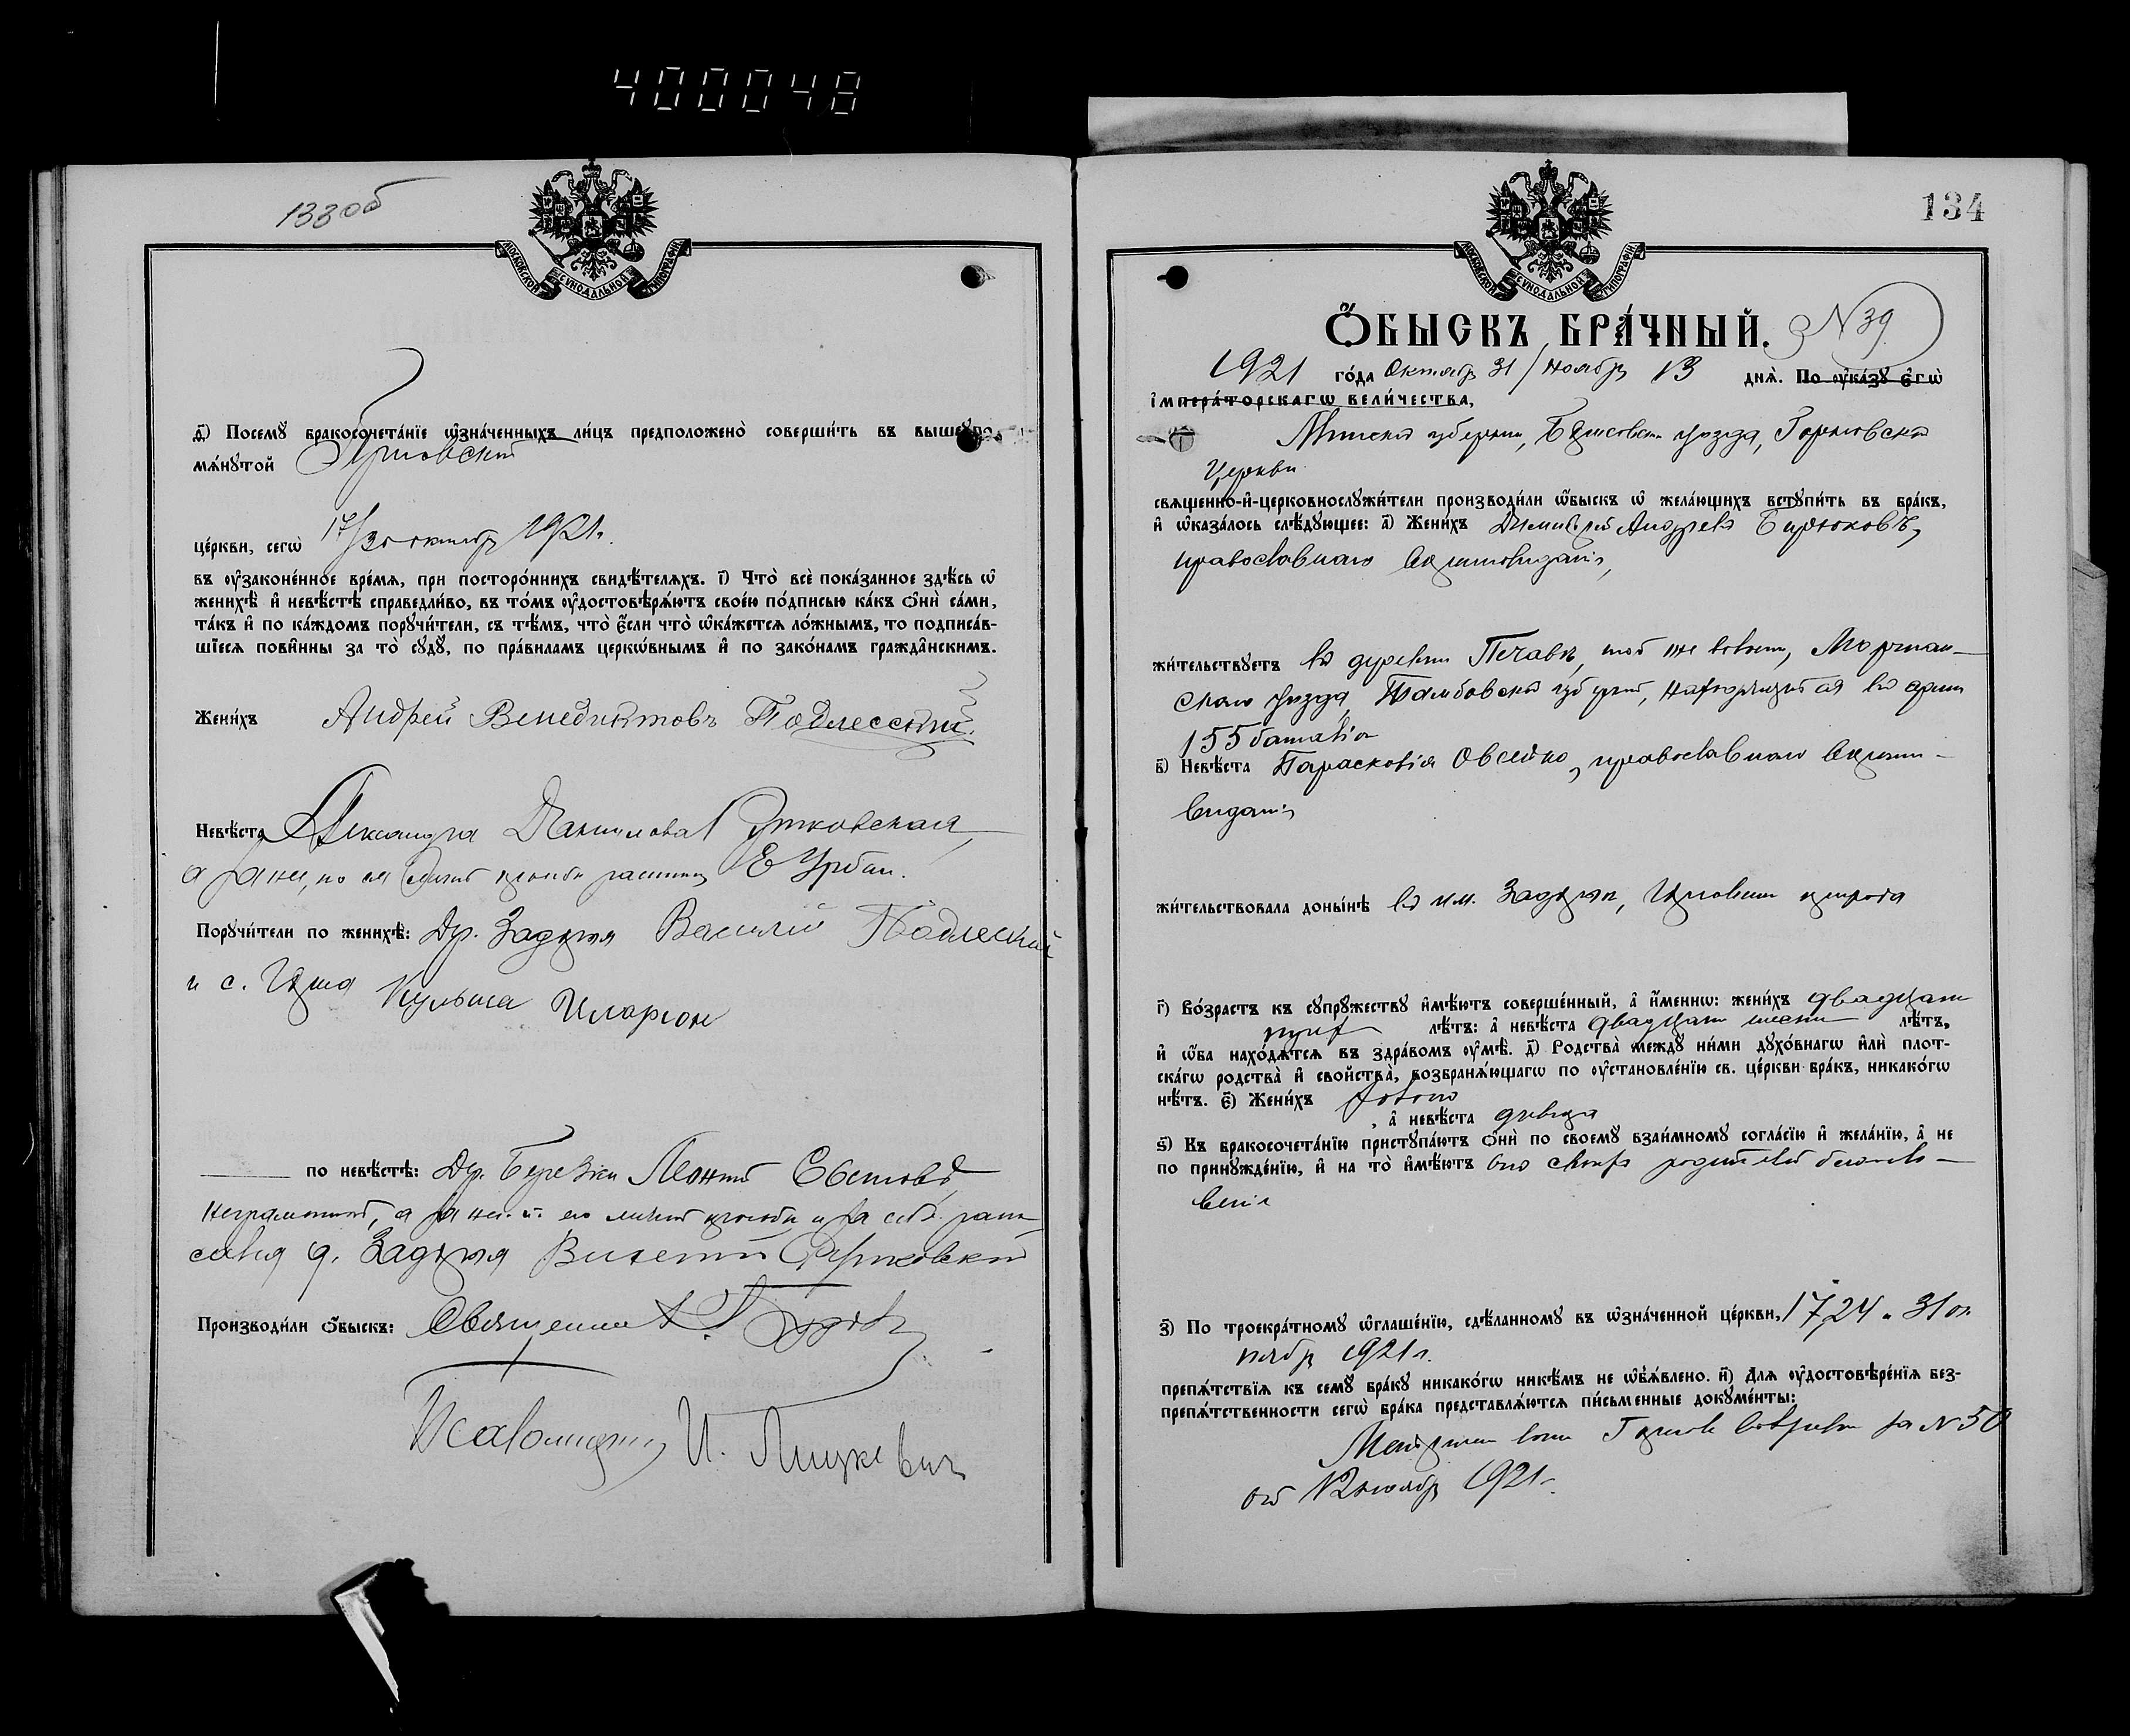 400048
133об
МОСКОВСКОЙ СУНОДАЛЬНОЙ ТИПОГРАФІИ
д҃) Посемꙋ̀ бракосочета́нїе ѡ҆зна́ченныхъ ли́цъ предположено̀ соверши́ть въ вышеꙋпо-
мѧ́нꙋтой
це́ркви, сегѡ̀ 17/30 октября 1921 г.
въ ᲂу҆зако́ненное вре́мѧ, при посторо́ннихъ свидѣ́телѧхъ. і҃) Что̀ всѐ пока́занное здѣ́сь ѡ҆
женихѣ̀ и҆ невѣ́стѣ справедли́во, въ то́мъ ᲂу҆достовѣрѧ́ютъ свое́ю по́дписью ка́къ ѻ҆нѝ са́ми,
та́къ и҆ по ка́ждомъ порꙋчи́тели, съ тѣ́мъ, что̀ є҆́сли что̀ ѡ҆ка́жетсѧ ло́жнымъ, то подписа́в-
шїесѧ пови́нны за то̀ сꙋдꙋ̀, по пра́виламъ церкѡ́внымъ и҆ по зако́намъ гражда̂нскимъ.
Жени́хъ Андрей Венедиктовъ Подлесский
Невѣ́ста Александра Данилова Рутковская
а за нея, по ея личной просьбе расписался Е Урбан.
Порꙋчи́тели по женихѣ̀: Др. Задорья Василий Подлеский
и с. Кульша Иларион
по невѣ́стѣ: Др. Березки Леонтий Евстовъ
неграмотный, а за него по его личной просьбе и за себя распи-
сался д. Задорья Викентий Рутковский
Производи́ли ѻ҆́быскъ: Священник
Псаломщик И. Лицкевич
134
МОСКОВСКОЙ СУНОДАЛЬНОЙ ТИПОГРАФІИ
Ѻ҆́БЫСКЪ БРА́ЧНЫЙ. N 39
1921 го́да Октября 31/Ноября 13 днѧ̀. По ᲂу҆ка́зꙋ є҆гѡ̀
і҆мпера́торскагѡ вели́чества,
Минской губернии, Борисовского уезда,
Церкви
свѧще́нно-и҆-церковнослꙋжи́тели производи́ли ѡ҆́быскъ ѡ҆ жела́ющихъ встꙋпи́ть въ бра́къ,
и҆ ѡ҆каза́лось слѣ́дꙋющее: а҃) Жени́хъ Димитрий Андреевъ Бирюковъ,
православнаго вероисповедания,
жи́тельствꙋетъ въ деревни той же волости, Моршан-
скаго уезда, Тамбовской губернии, находящийся въ армии
155 батальон
в҃) Невѣ́ста Парасковія Овсейко, православнаго вероиспо-
ведания
жи́тельствовала доны́нѣ въ им. Задорье, прихода
г҃) Во́зрастъ къ сꙋпрꙋ́жествꙋ и҆мѣ́ютъ соверше́нный, а҆ и҆́меннѡ: жени́хъ двадцати
трех лѣ́тъ: а҆ невѣ́ста двадцати шести лѣ́тъ,
и҆ ѡ҆́ба нахо́дѧтсѧ въ здра́вомъ ᲂу҆мѣ̀. д҃) Родства̀ междꙋ̀ ни́ми дꙋхо́внагѡ и҆лѝ плот-
ска́гѡ родства̀ и҆ свойства̀, возбранѧ́ющагѡ по ᲂу҆становле́нїю св. це́ркви бра́къ, никако́гѡ
нѣ́тъ. є҃) Жени́хъ холост
, а҆ невѣ́ста девица
ѕ҃) Къ бракосочета́нїю пристꙋпа́ютъ ѻ҆нѝ по своемꙋ̀ взаи́мномꙋ согла́сїю и҆ жела́нїю, а҆ не
по принꙋжде́нїю, и҆ на то̀ и҆мѣ́ютъ отъ своихъ родителей благосло-
вение
з҃) По троекра́тномꙋ ѡ҆глаше́нїю, сдѣ́ланномꙋ въ ѡ҆зна́ченной це́ркви, 17, 24 и 31 ок-
тября 1921 г.
препѧ́тствїѧ къ семꙋ̀ бра́кꙋ никако́гѡ никѣ́мъ не ѡ҆б̾ѧ́влено. и҃) Длѧ ᲂу҆достовѣре́нїѧ без-
препѧ́тственности сегѡ̀ бра́ка представлѧ́ютсѧ пи́сьменные докꙋме́нты:
за N 50
от 12 ноября 1921 г.